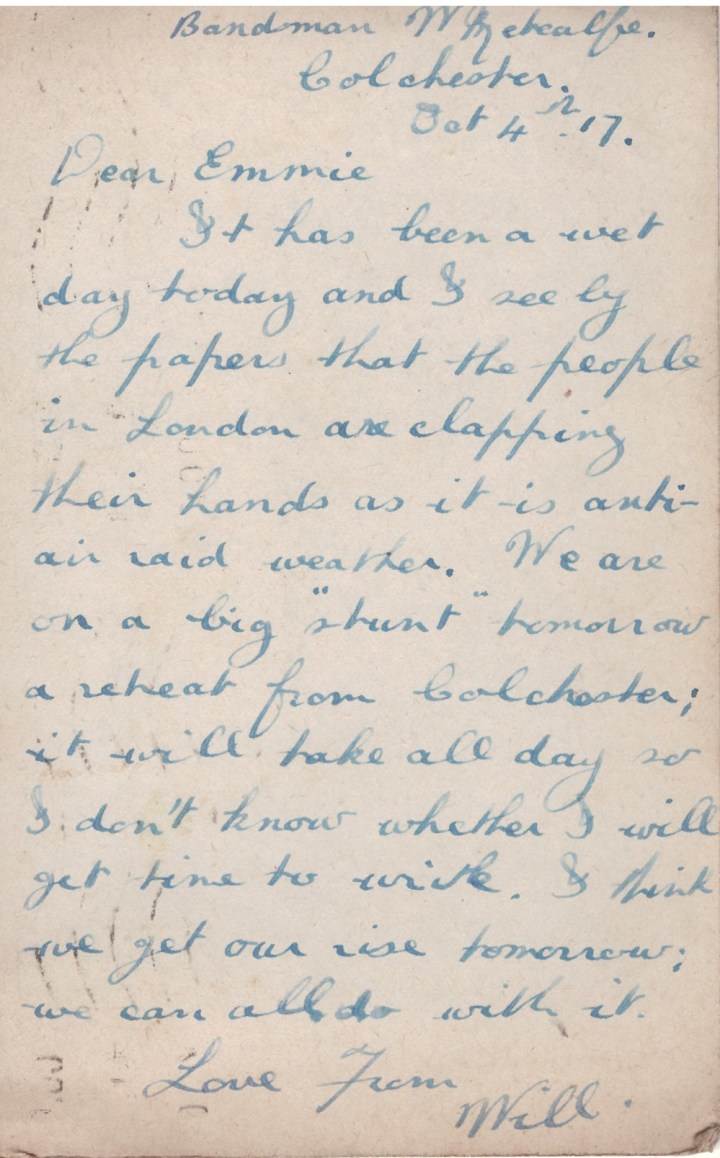 Bandman W Metcalfe.
Colchester.
Oct 4th. 17.
Dear Emmie
It has been a wet
day today and I see by
the papers that the people
in London are clapping
their hands as it is anti-
air raid weather. We are
on a big "stunt" tomorrow
a retreat from Colchester;
it will take all day so
I don't know whether I will
get time to write. I think
we get our rise tomorrow;
we can all do with it.
Love From
Will.